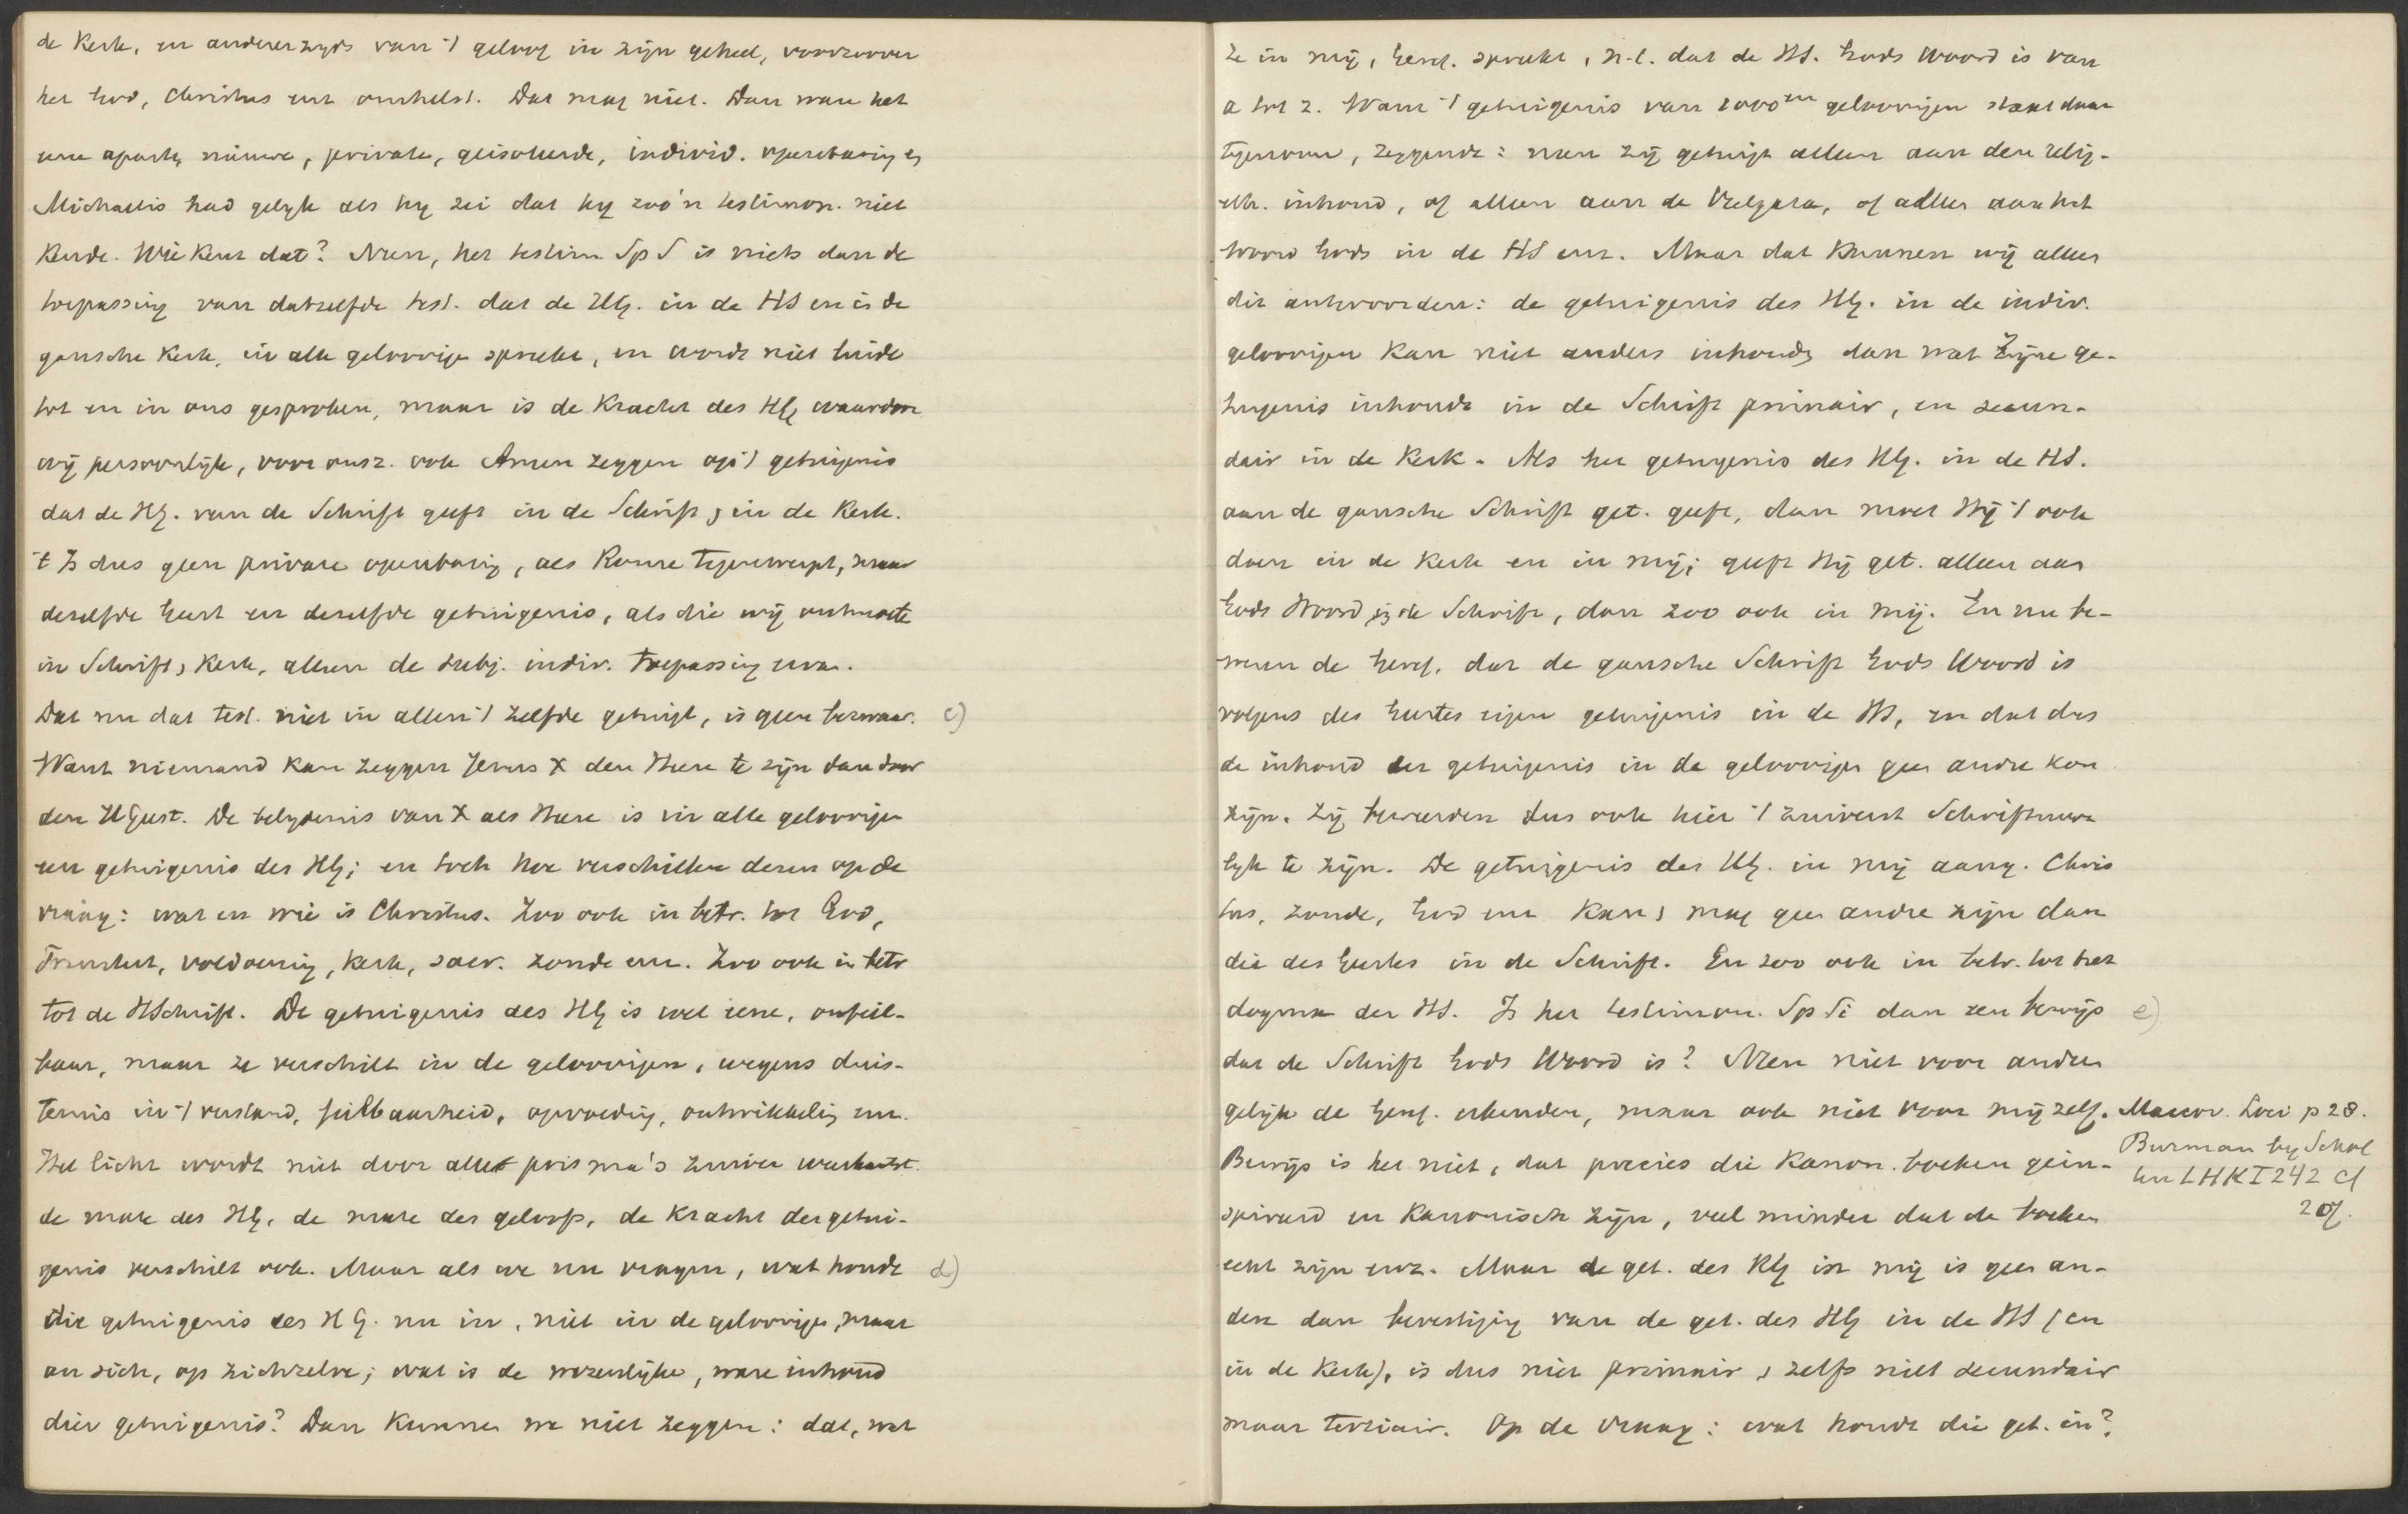 de Kerk, en andererzyds van 't geloof in zijn geheel, voorzoover
het God, Christus enz omhelst. Dat mag niet. Dan ware het
eene aparte, nieuwe, private, geisoleerde, individ. openbaring en
Michaelis had gelyk als hy zei dat hy zoo'n testimon. niet
kende. Wie kent dat? Neen, het testim Sp S is niets dan de
toepassing van datzelfde test. dat de HG. in de HS en in de
gansche Kerk, in alle geloovige spreekt, en wordt niet buiten
tot en in ons gesproken, maar is de Kracht des HG waardoor
wij persoonlijk, voor onsz. ook Amen zeggen op 't getuigenis
dat de HG. van de Schrift geeft in de Schrift, in de Kerk.
't Is dus geen private openbaring, als Rome tegenwerpt, maar
dezelfde Geest en dezelfde getuigenis, als die wij ontmoete
in Schrift, Kerk, alleen de subj. indiv. toepassing ervan.
Dat nu dat test. niet in allen 't zelfde getuigt, is geen bezwaar. c)
Want niemand kan zeggen Jezus X den Heere te zijn dan door
den HGeest. De belydenis van X als Heere is in alle geloovigen
een getuigenis des HG; en toch hoe verschillen dezen op de
vraag: wat en wie is Christus. Zoo ook in betr. tot God,
Triniteit, voldoening, Kerk, sacr. zonde enz. Zoo ook in betr
tot de HSchrift. De getuigenis des HG is wel eene, onfeil-
baar, maar ze verschilt in de geloovigen, wegens duis-
ternis in 't verstand, feilbaarheid, opvoeding, ontwikkeling enz.
Het licht wordt niet door alle prisma's zuiver weerkaatst.
de mate des HG, de mate des geloofs, de Kracht der getui-
genis verschilt ook. Maar als we nu vragen, wat houdt d)
die getuigenis des HG. nu in, niet in de geloovige, maar
an sich, op zichzelve; wat is de wezenlijke, ware inhoud
dier getuigenis? Dan kunnen we niet zeggen: dat, wat
Ze in mij, Geref. spreekt, n.l. dat de HS. Gods Woord is van
a tot z. Want 't getuigenis van 1000en geloovigen staat daar
tegenover, zeggende: neen zij getuigt alleen aan den relig-
eth. inhoud, of alleen aan de Vulgata, of alleen aan het
Woord Gods in de HS enz. Maar dat kunnen wij alleen
dit antwoorden: de getuigenis des HG. in de indiv.
geloovigen kan niet anders inhouden dan wat Zijne ge-
tuigenis inhoudt in de Schrift primair, en secun-
dair in de Kerk. Als het getuigenis des HG. in de HS.
aan de gansche Schrift get. geeft, dan moet Hij 't ook
doen in de Kerk en in mij; geeft Hij get. alleen aan
Gods Woord in de Schrift, dan zoo ook in mij. En nu be-
weren de Geref. dat de gansche Schrift Gods Woord is
volgens des Geestes eigen getuigenis in de HS, en dat dus
de inhoud der getuigenis in de geloovigen geen andre kan
zijn. Zij beweerden dus ook hier 't zuiverst Schriftuur-
lyk te zijn. De getuigenis des HG. in mij aang. Chris
tus, zonde, God enz kan, mag geen andre zijn dan
die des Geestes in de Schrift. En zoo ook in betr. tot het
dogma der HS. Is het testimon. Sp Si dan een bewijs e)
dat de Schrift Gods Woord is? Neen niet voor anderen
gelijk de Geref. erkenden, maar ook niet voor mijzelf. Maccov. Loci p 28.
Burman by Schol
ten LHK I 242 cf
207.
Bewijs is het niet, dat precies die Kanon. boeken gein-
spireerd en Kanonisch zijn, veel minder dat de boeken
echt zijn enz. Maar de get. des HG in mij is geen an-
dere dan bevestiging van de get. des HG in de HS (en
in de Kerk), is dus niet primair, zelfs niet secundair
maar tertiair. Op de vraag: wat houdt die get. in?